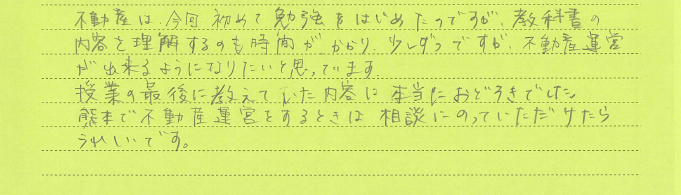 不動産は、今回初めて勉強をはじめたのですが、教科書の
内容を理解するのも時間がかかり、少しずつですが、不動産運営
が出来るようになりたいと思っています。
授業の最後に教えていた内容は本当におどろきでした。
熊本で不動産運営をするときは相談にのっていただけたら
うれしいです。